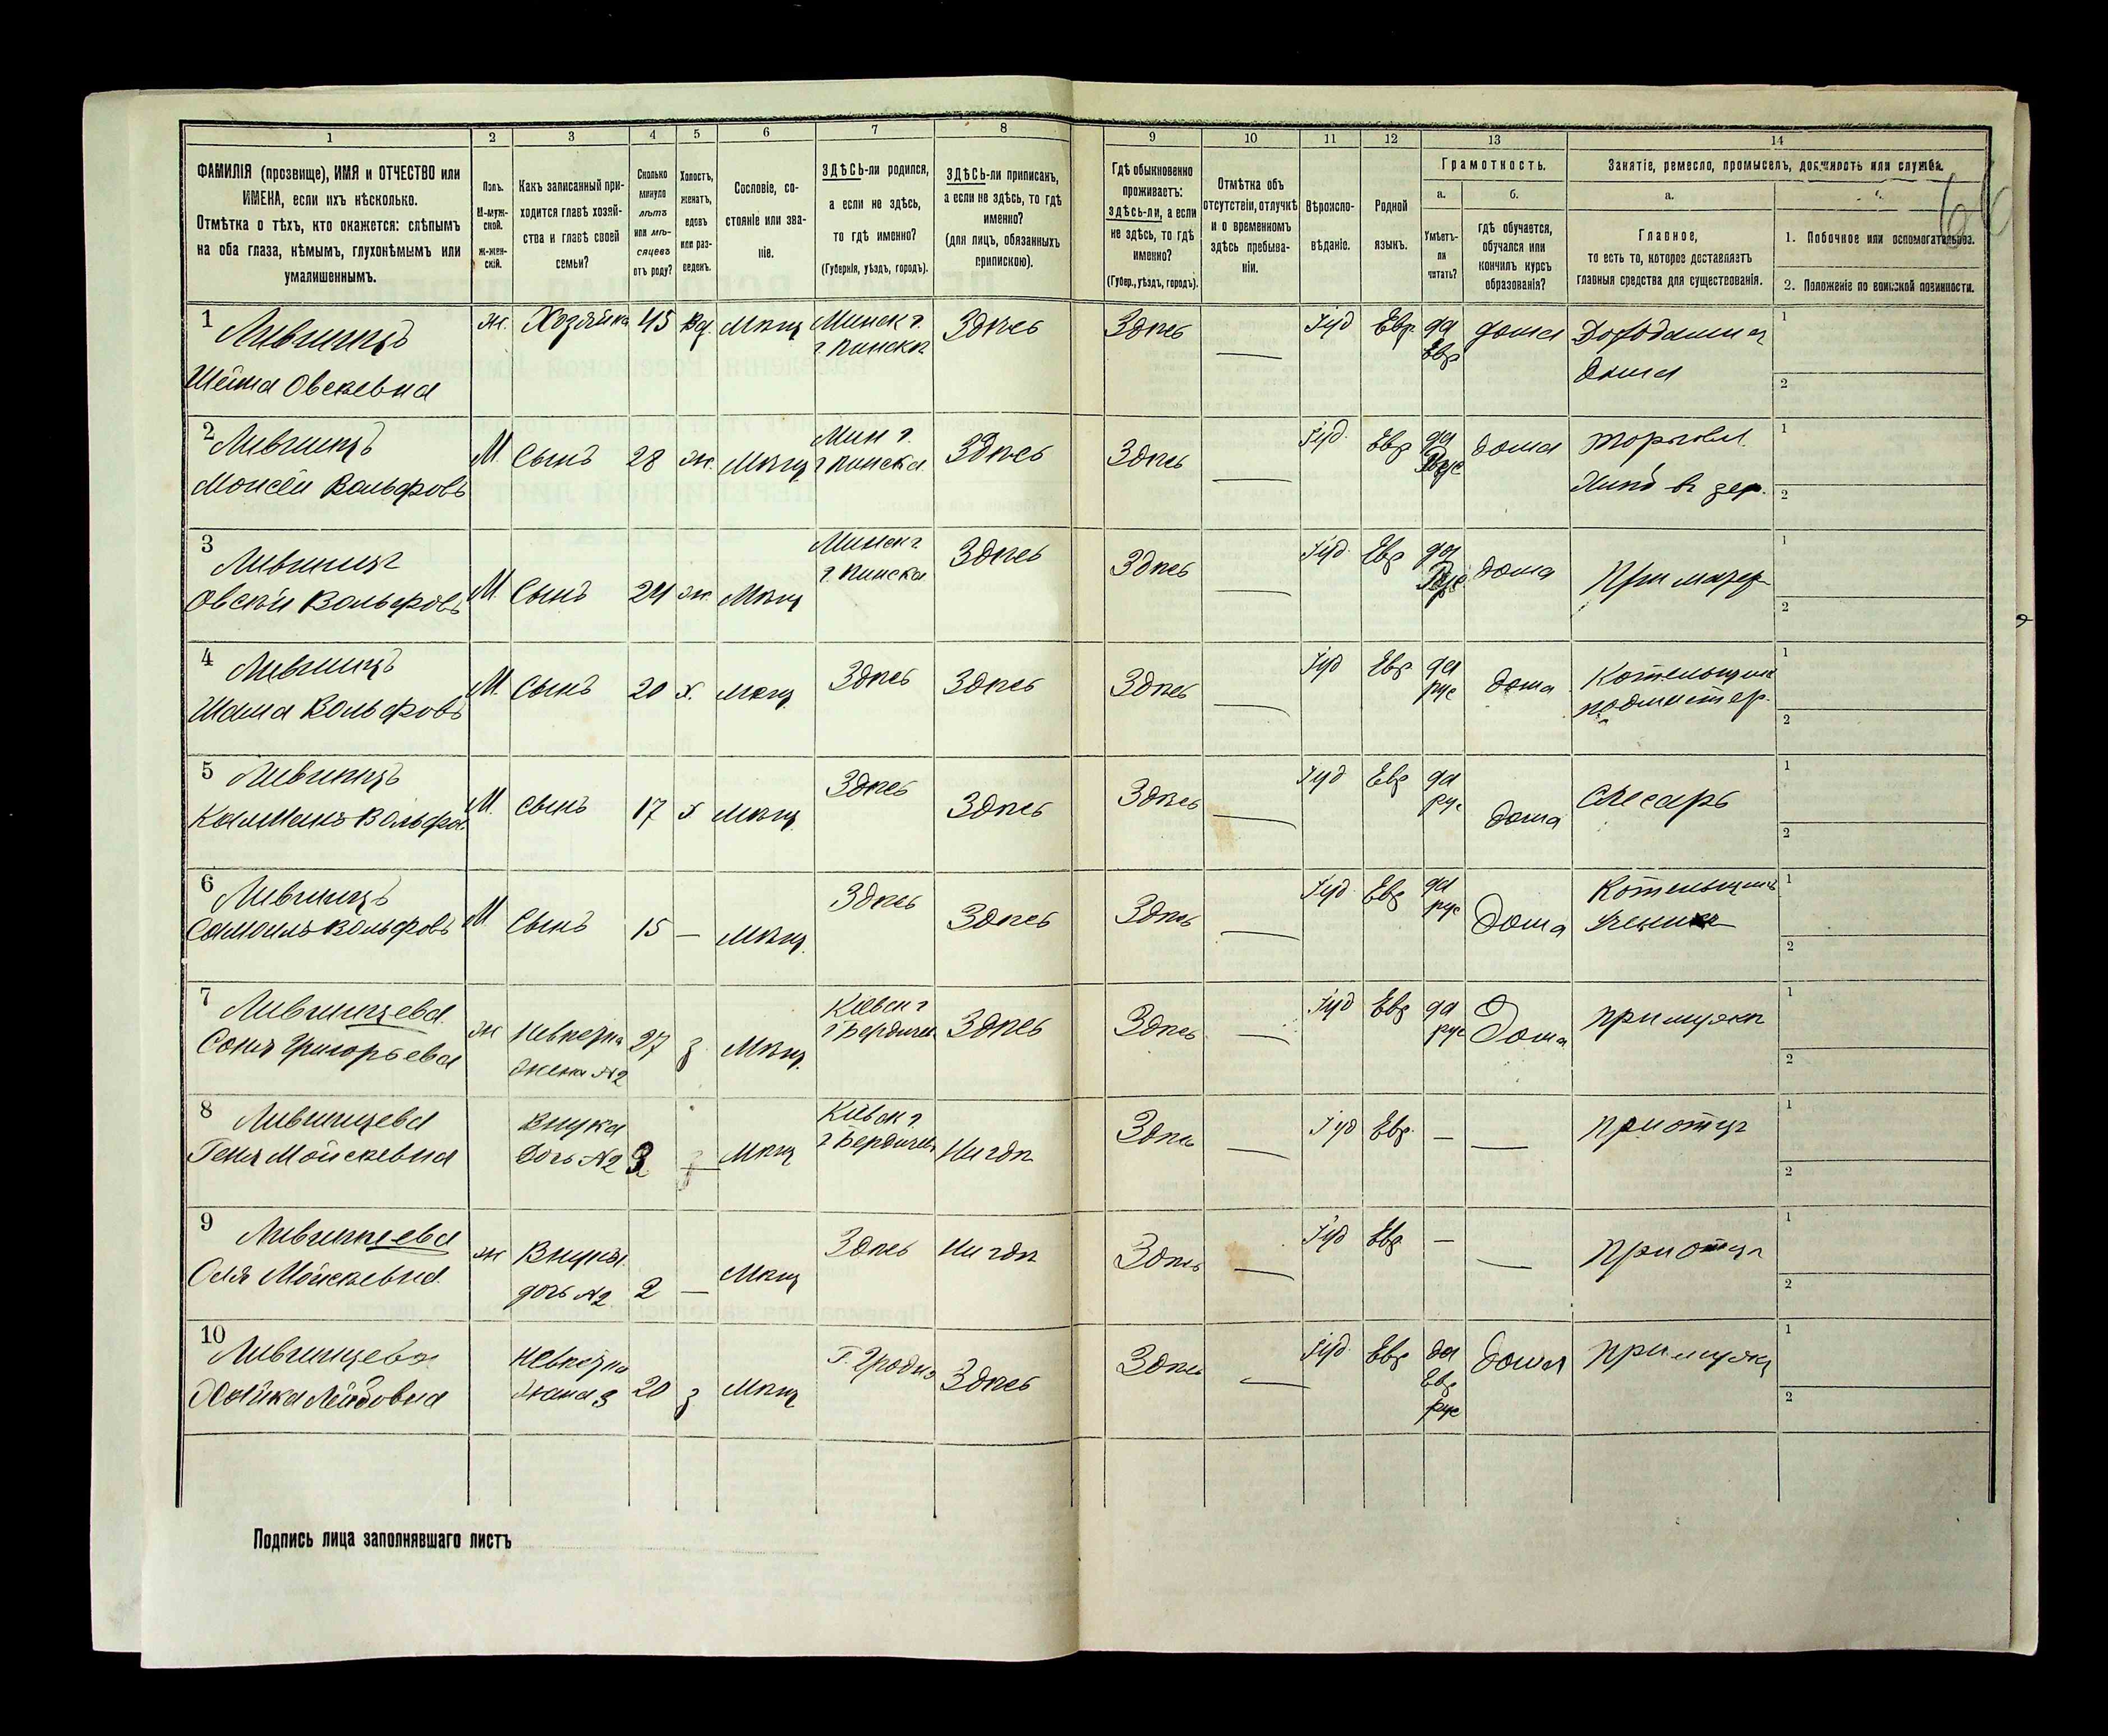 1 2 3 4 5 6 7 8 9 10 11 12 13 14
ФАМИЛІЯ (прозвище), ИМЯ и ОТЧЕСТВО или
ИМЕНА, если ихъ нѣсколько.
Отмѣтка о тѣхъ, кто окажется: слѣпымъ
на оба глаза, нѣмымъ, глухонѣмымъ или
умалишеннымъ.
Полъ.
М-муж-
ской.
Ж-жен-
скій.
Какъ записанный при-
ходится главѣ хозяй-
ства и главѣ своей
семьи?
Сколько
минуло
лѣтъ
или мѣ-
сяцевъ
отъ роду?
Холостъ,
женатъ,
вдовъ
или раз-
веденъ.
Сословіе, со-
стояніе или зва-
ніе.
ЗДѢСЬ-ли родился,
а если не здѣсь,
то гдѣ именно?
(Губернія, уѣздъ, городъ).
ЗДѢСЬ-ли приписанъ,
а если не здѣсь, то гдѣ
именно?
(для лицъ, обязанныхъ
припискою).
Гдѣ обыкновенно
проживаетъ:
здѣсь-ли, а если
не здѣсь, то гдѣ
именно?
(Губер., уѣздъ, городъ).
Отмѣтка объ
отсутствіи, отлучкѣ
и о временномъ
здѣсь пребыва-
ніи.
Вѣроиспо-
вѣданіе.
Родной
языкъ.
Грамотность.
а.
Умѣетъ-
ли
читать?
б.
гдѣ обучается,
обучался или
кончилъ курсъ
образованія?
Занятіе, ремесло, промыселъ, должность или служба.
а.
Главное,
то есть то, которое доставляетъ
главныя средства для существованія.
1. Побочное или вспомогательное.
2. Положеніе по воинской повинности.
1 Лившицъ
Шейма Овсеевна
ж. Хозяйка 45 вд. Мѣщ Минск г.
г. Пинска Здѣсь Здѣсь — Іуд Евр. да
Евр дома
Дома
1
2
2 Лившицъ
Моисей Вольфовъ
М. Сынъ 28 ж. Мѣщ Мин г.
г Пинска Здѣсь Здѣсь — Іуд. Евр да
дома торговл.
1
2
3 Лившицъ
Овсей Вольфовъ
М. Сынъ 24 ж. Мѣщ Минск г
г. Пинска Здѣсь Здѣсь — Іуд. Евр да
дома При матер
1
2
4 Лившицъ
Вольфовъ
М. Сынъ 20 х. мѣщ. Здѣсь Здѣсь Здѣсь — Іуд Евр да
рус дома Котельщик
подмастер.
1
2
5 Лившицъ
Калманъ Вольфов
М. сынъ 17 х мѣщ. Здѣсь Здѣсь Здѣсь — Іуд Евр да
рус дома слесарь
1
2
6 Лившицъ
Самоилъ Вольфовъ
М Сынъ 15 — мѣщ. Здѣсь Здѣсь Здѣсь — Іуд. Евр да
рус Дома Котельщикъ
ученикъ
1
2
7 Лившицева
Соня Григорьева
ж Невѣстка
жена №2 27 з. Мѣщ. Кіевск г
г Бердичев Здѣсь Здѣсь — Іуд Евр да
рус Дома при мужѣ
1
2
8 Лившицева
Геня Мойсеевна
Внука
Дочь №2 3 — Мѣщ Кіевск г
г Бердичев Нигдѣ Здѣсь — Іуд Евр. — — при отцѣ
1
2
9 Лившицева
Оля Мойсеевна
ж Внука
дочь №2 2 — Мѣщ Здѣсь Нигдѣ Здѣсь — Іуд Евр — — при отцѣ
1
2
10 Лившицева
Хайка Лейбовна
Невѣстка
жена 3 20 з Мѣщ Г. Гродно Здѣсь Здѣсь — Іуд. Евр да
Евр
рус дома при мужѣ
1
2
Подпись лица заполнявшаго листъ